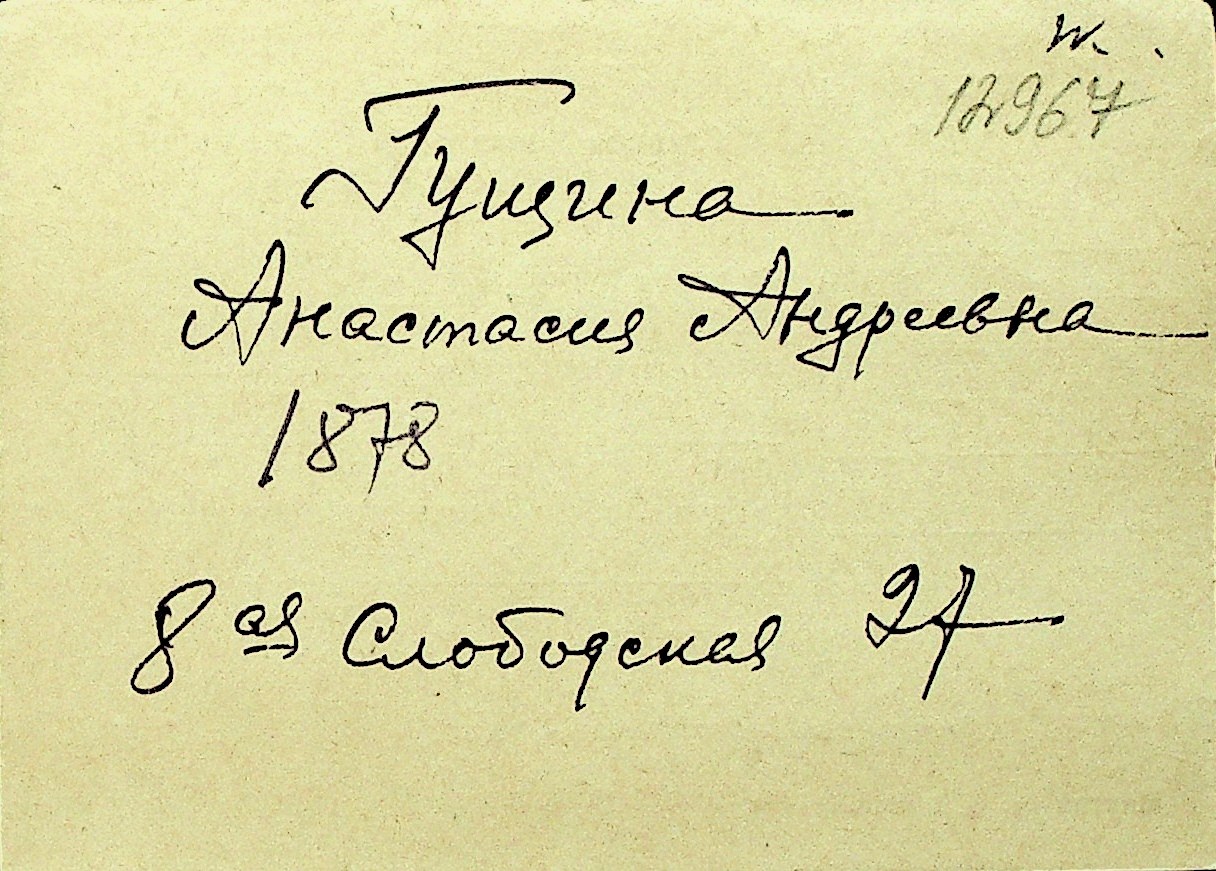 12967
Гущина
Анастасия Андреевна
1878
8ая Слободская 27